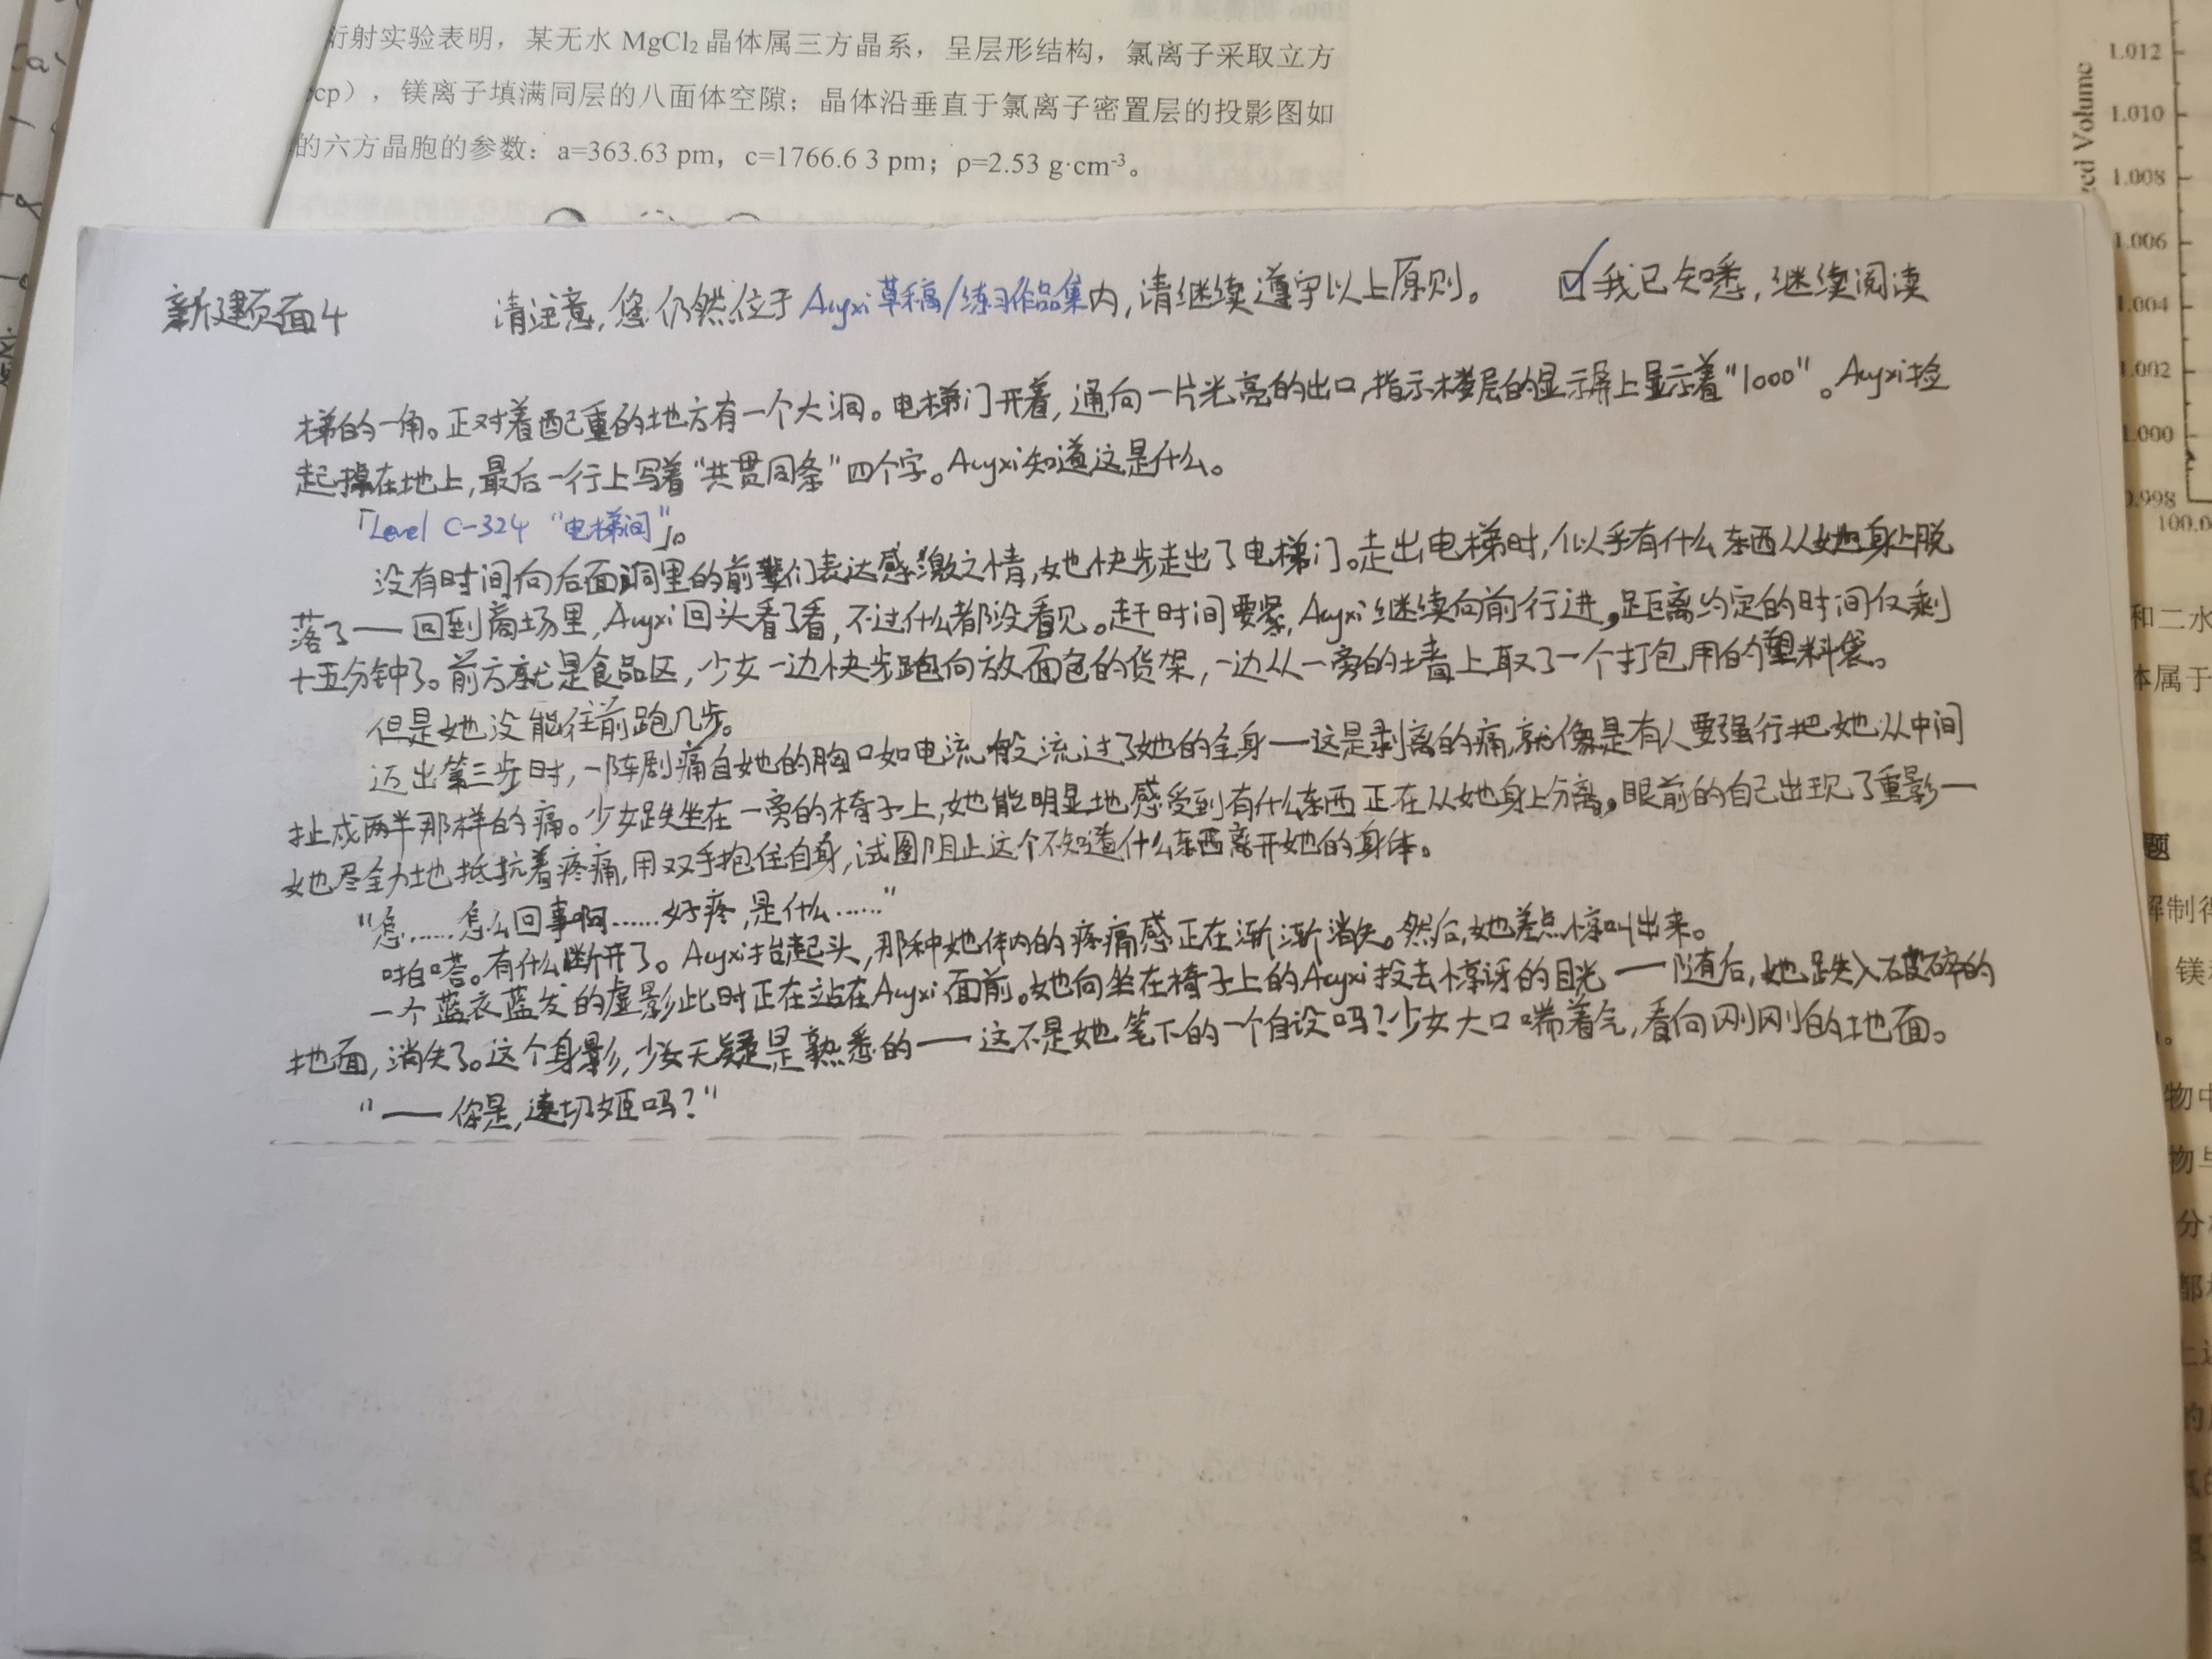 衍射实验表明，某无水 MgCl₂ 晶体属三方晶系，呈层形结构，氯离子采取立方
cp），镁离子填满同层的八面体空隙；晶体沿垂直于氯离子密置层的投影图如
的六方晶胞的参数：a=363.63 pm，c=1766.6 3 pm；ρ=2.53 g·cm⁻³。
新建页面4 请注意，您仍然位于Acyxi草稿/练习作品集内，请继续遵守以上原则。 ☑我已知悉，继续阅读
梯的一角。正对着配重的地方有一个大洞。电梯门开着，通向一片光亮的出口，指示楼层的显示屏上显示着“1000”。Acyxi捡
起掉在地上，最后一行上写着“共贯同条”四个字。Acyxi知道这是什么。
「Level C-324 “电梯间”」。
没有时间向后面洞里的前辈们表达感激之情，她快步走出了电梯门。走出电梯时，似乎有什么东西从她身上脱
落了——回到商场里，Acyxi回头看了看，不过什么都没看见。赶时间要紧，Acyxi继续向前行进，距离约定的时间仅剩
十五分钟了。前方就是食品区，少女一边快步跑向放面包的货架，一边从一旁的墙上取了一个打包用的塑料袋。
但是她没能往前跑几步。
迈出第三步时，一阵剧痛自她的胸口如电流般流过了她的全身——这是剥离的痛，就像是有人要强行把她从中间
扯成两半那样的痛。少女跌坐在一旁的椅子上，她能明显地感受到有什么东西正在从她身上分离，眼前的自己出现了重影—
她尽全力地抵抗着疼痛，用双手抱住自身，试图阻止这个不知道什么东西离开她的身体。
“怎……怎么回事啊……好疼，是什么……”
啪嗒。有什么断开了。Acyxi抬起头，那种她体内的疼痛感正在渐渐消失。然后，她差点惊叫出来。
一个蓝衣蓝发的虚影此时正在站在Acyxi面前。她向坐在椅子上的Acyxi投去惊讶的目光——随后，她跌入破碎的
地面，消失了。这个身影，少女无疑是熟悉的——这不是她笔下的一个自设吗？少女大口喘着气，看向刚刚的地面。
“——你是，速切姬吗？”
ed Volume
1.012
1.010
1.008
1.006
1.004
1.002
1.000
0.998
100.0
和二水
体属于
题
解制得
镁
物中
物与
分
都
的